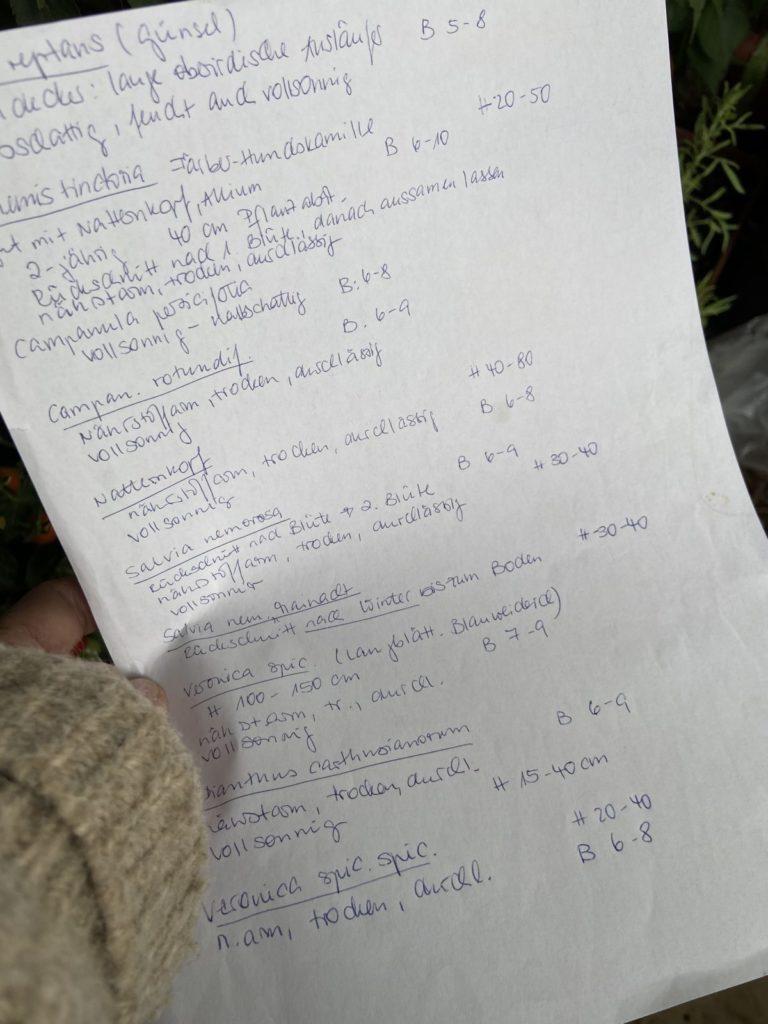 reptans (Günsel)
decker: lange oberirdische Ausläufer B 5-8
, feucht und vollsonnig
tinctoria Färber-Hundskamille H 20-50
mit Natternkopf, Allium B 6-10
2-jährig 40 cm Pflanzabst.
Rückschnitt nach 1. Blüte, danach aussamen lassen
nährstarm, trocken, durchlässig
Campanula persicifolia
vollsonnig - halbschattig B: 6-8
Campan. rotundif. B: 6-9
Nährstoffarm, trocken, durchlässig
vollsonnig
Natternkopf H 40-80
nährstoffarm, trocken, durchlässig B 6-8
vollsonnig
Salvia nemorosa B 6-9 H 30-40
Rückschnitt nach Blüte → 2. Blüte
nährstoffarm, trocken, durchlässig
vollsonnig
Salvia nem. H 30-40
Rückschnitt nach Winter bis zum Boden
Veronica spic. (Langblätt. Blauweiderich)
H 100-150 cm B 7-9
nährstarm, tr., durchl.
vollsonnig
Dianthus carthusianorum B 6-9
nährstarm, trocken, durchl. H 15-40 cm
vollsonnig
Veronica spic. spic. H 20-40
n.arm, trocken, durchl. B 6-8